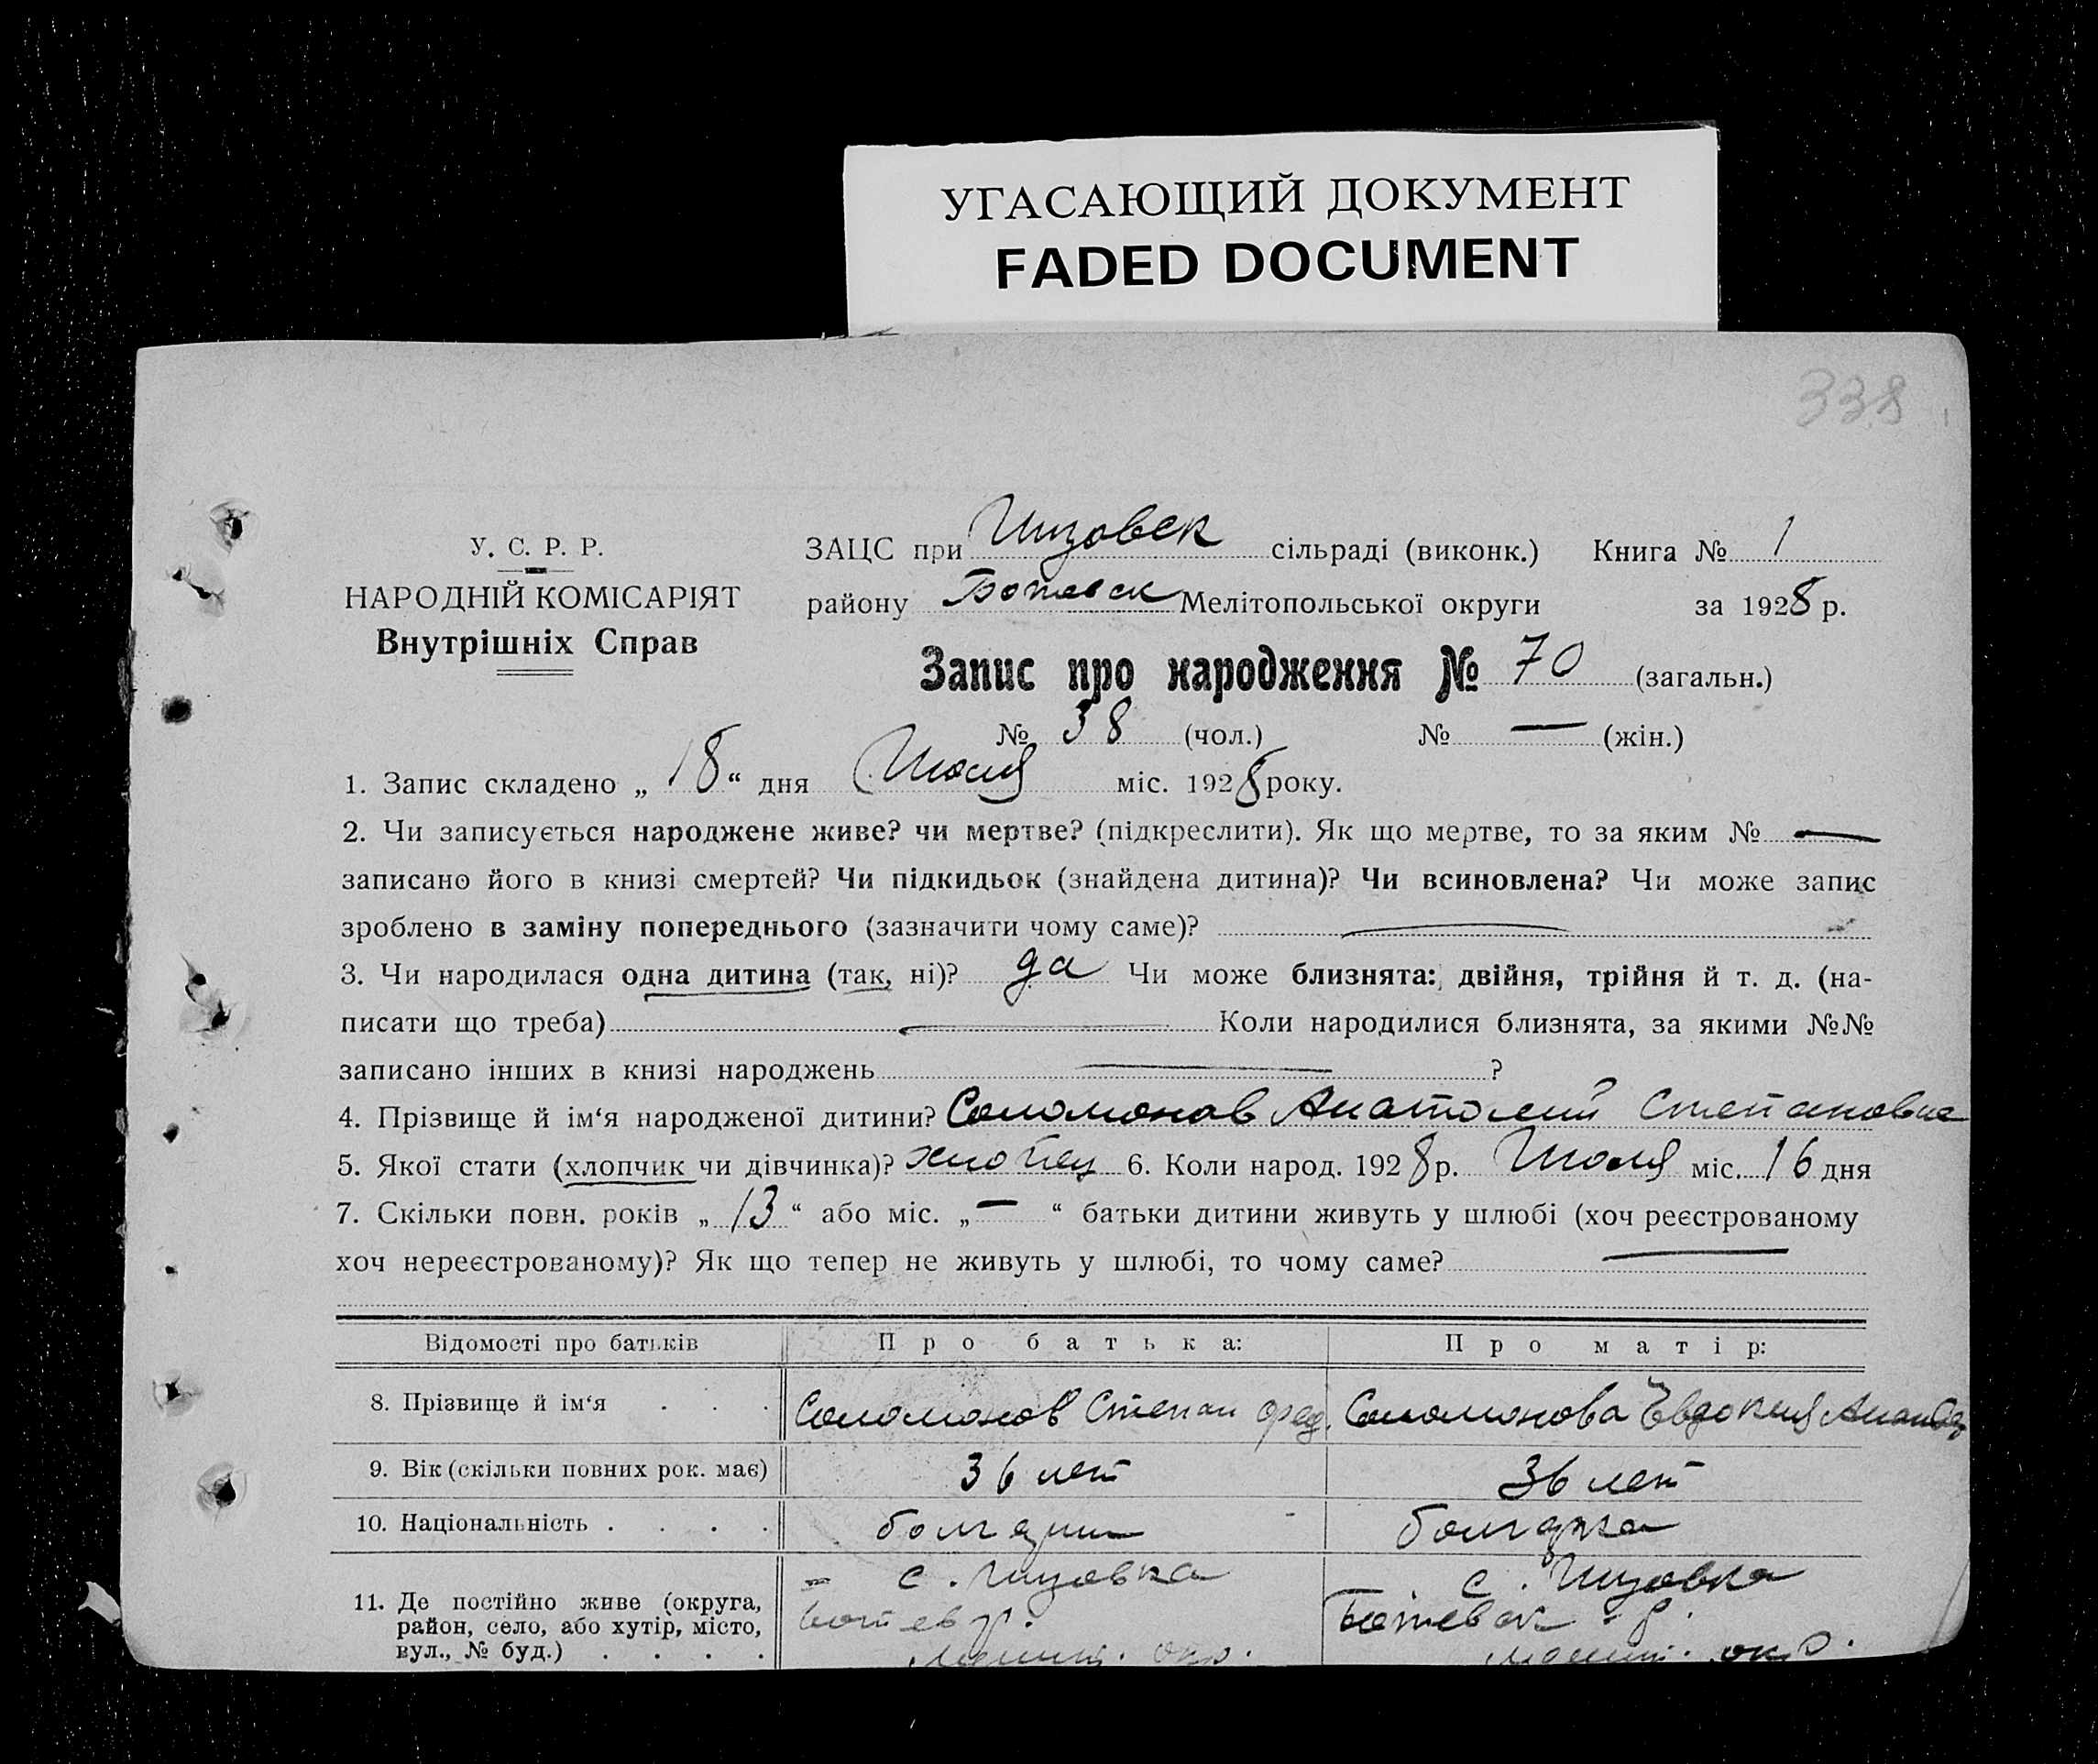 УГАСАЮЩИЙ ДОКУМЕНТ
FADED DOCUMENT
338
У. С. Р. Р.
НАРОДНІЙ КОМІСАРІЯТ
Внутрішніх Справ
ЗАЦС при Гизовск сільраді (виконк.) Книга № 1
району Ботевск Мелітопольської округи за 1928 р.
Запис про народження № 70 (загальн.)
№ 38 (чол.) № — (жін.)
1. Запис складено „ 18 “ дня Июля міс. 1928 року.
2. Чи записується народжене живе? чи мертве? (підкреслити). Як що мертве, то за яким № —
записано його в книзі смертей? Чи підкидьок (знайдена дитина)? Чи всиновлена? Чи може запис
зроблено в заміну попереднього (зазначити чому саме)? —
3. Чи народилася одна дитина (так, ні)? да Чи може близнята: двійня, трійня й т. д. (на-
писати що треба) — Коли народилися близнята, за якими №№
записано інших в книзі народжень — ?
4. Прізвище й ім‘я народженої дитини? Соломонов Анатолий Степанович
5. Якої стати (хлопчик чи дівчинка)? хлопец 6. Коли народ. 1928 р. Июля міс. 16 дня
7. Скільки повн. років „ 13 “ або міс. „ — “ батьки дитини живуть у шлюбі (хоч реєстрованому
хоч нереєстрованому)? Як що тепер не живуть у шлюбі, то чому саме? —
Відомості про батьків Про батька: Про матір:
8. Прізвище й ім‘я . . . Соломонов Степан Фед. Соломонова Евдокия
9. Вік (скільки повних рок. має) 36 лет 36 лет
10. Національність . . . . болгарин болгарка
11. Де постійно живе (округа, район, село, або хутір, місто, вул., № буд.) . . . . с. Гизовка Ботев р. Мелит. окр. с. Гизовка Ботевск р. Мелит. окр.